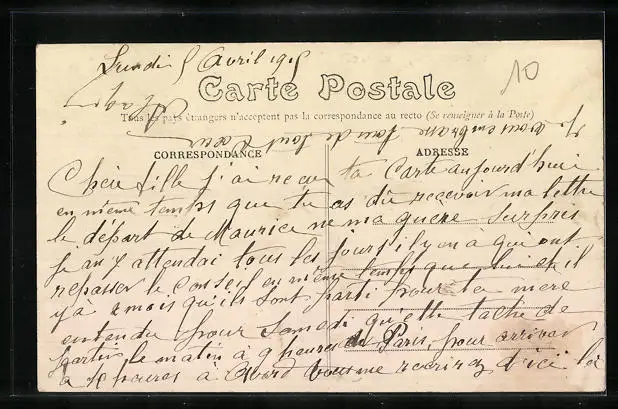 Lundi 5 Avril 1915
10
Carte Postale
Tous les pays étrangers n'acceptent pas la correspondance au recto (Se renseigner à la Poste)
CORRESPONDANCE
ADRESSE
Chère fille j'ai reçu ta Carte aujourd'hui
en même temps que tu as dû recevoir ma lettre
le départ de Maurice ne ma guere surpris
je my attendai tous les jours il y on à qui ont
repasser le Conseil en même temps que lui et il
y à 2 mois qu'ils sont parti pour ta mere
entendu pour Samedi qu'elle tache de
partir le matin à 9 heures de Paris, pour arriver
à heures à Avord vous me recrirez d'ici là
Je vous embrasse tous de tout Cœur